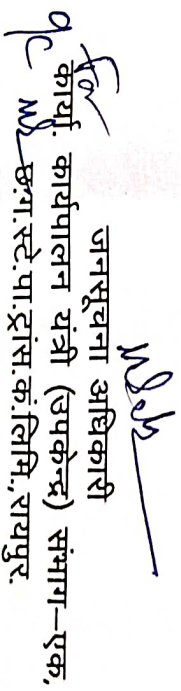 जनसूचना अधिकारी
For कार्या. कार्यपालन यंत्री (उपकेन्द्र) संभाग–एक,
छ.ग.स्टे.पा.ट्रांस.कं.लिमि.,रायपुर.